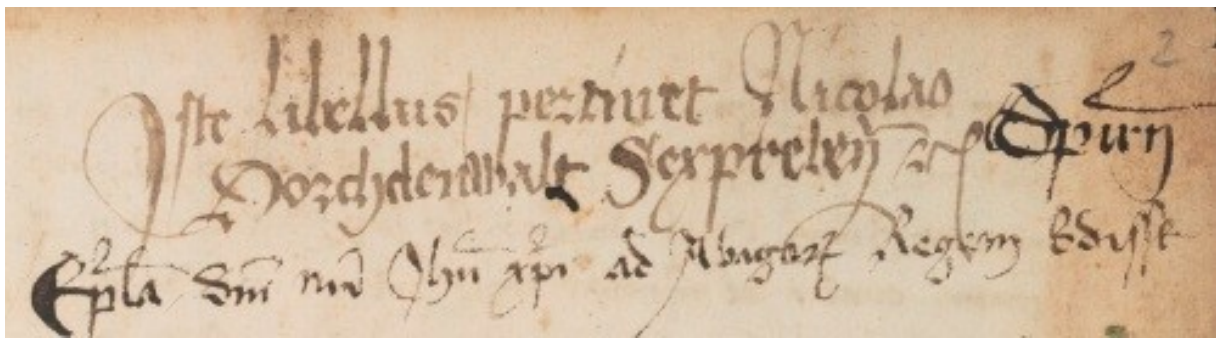 Iste libellus pertinet Nicolao
Dorchdenwalt Sexpreben̄ 2
Ep̄la dn̄i nr̄i Jhū xp̄i ad Abagarū Regem Edisse